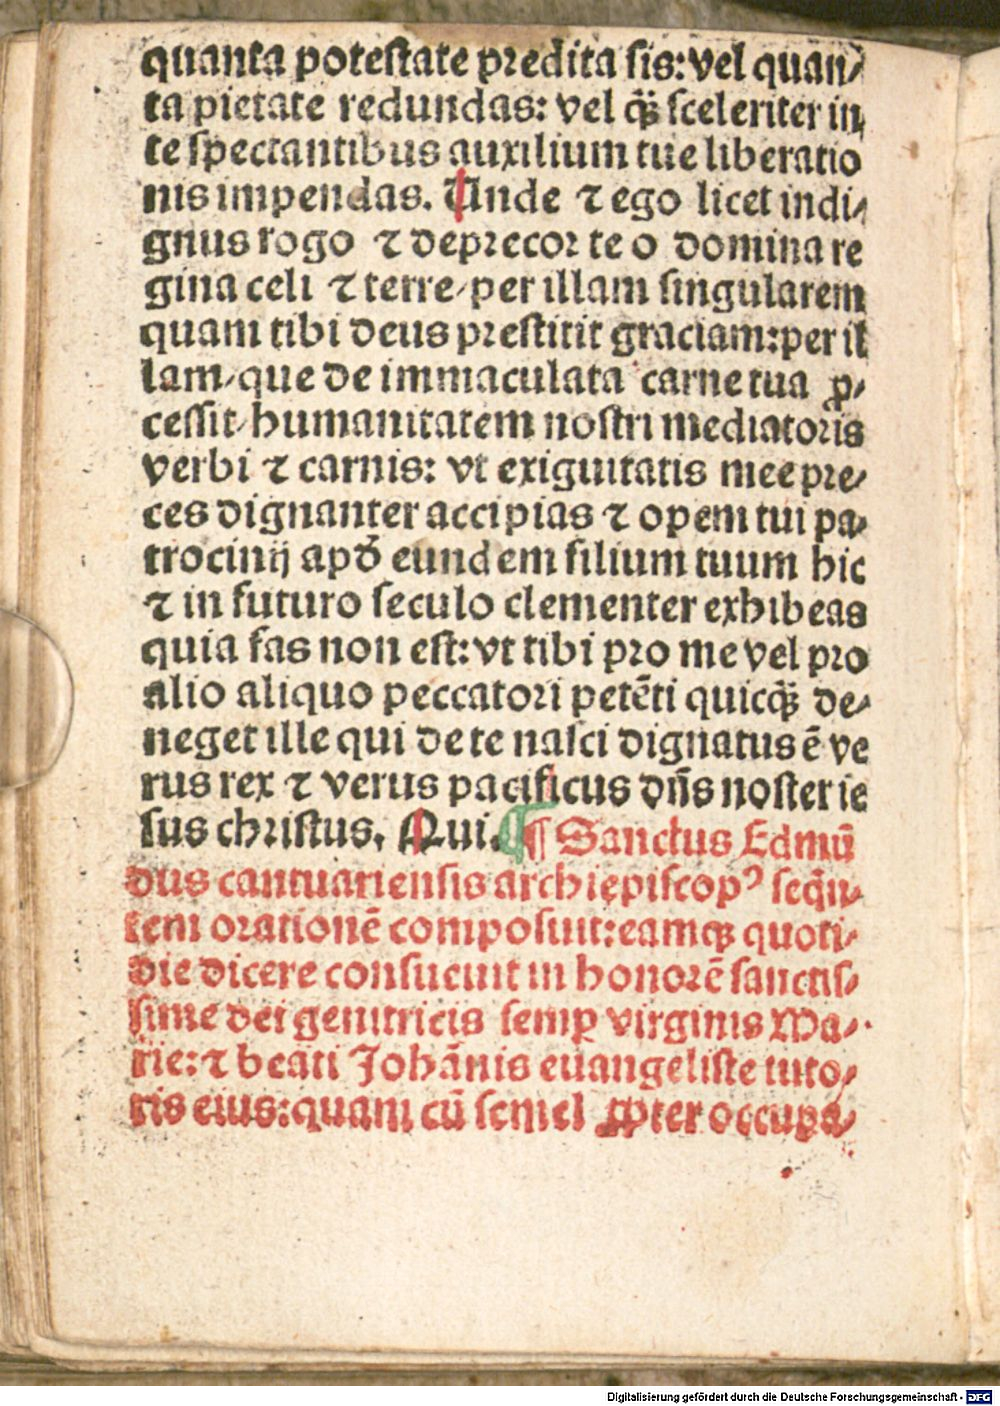 quanta potestate predita sis: vel quan/
ta pietate redundas: vel q̈ꝫ sceleriter in
te spectantibus auxilium tue liberatio
nis impendas. Unde ⁊ ego licet indi/
gnus rogo ⁊ deprecor te o domina re
gina celi ⁊ terre/ per illam singularem
quam tibi deus prestitit graciam: per il
lam/ que de immaculata carne tua ꝓ/
cessit/ humanitatem nostri mediatoris
verbi ⁊ carnis: vt exiguitatis mee pre/
ces dignanter accipias ⁊ opem tui pa/
trocinij apđ eundem filium tuum hic
⁊ in futuro seculo clementer exhibeas
quia fas non est: vt tibi pro me vel pro
alio aliquo peccatori petēti quicq̈ꝫ de/
neget ille qui de te nasci dignatus ē ve
rus rex ⁊ verus pacificus dn̄s noster ie
sus christus. Qui. ¶ Sanctus Edmū
dus cantuariensis archiepiscopꝰ seq̄n/
tem orationē composuit: eamqꝫ quoti/
die dicere consueuit in honorē sanctis/
sime dei genitricis semꝑ virginis Ma/
rie: ⁊ beati Johānis euangeliste tuto/
ris eius: quam cū semel ꝓpter occupa/
Digitalisierung gefördert durch die Deutsche Forschungsgemeinschaft - DFG